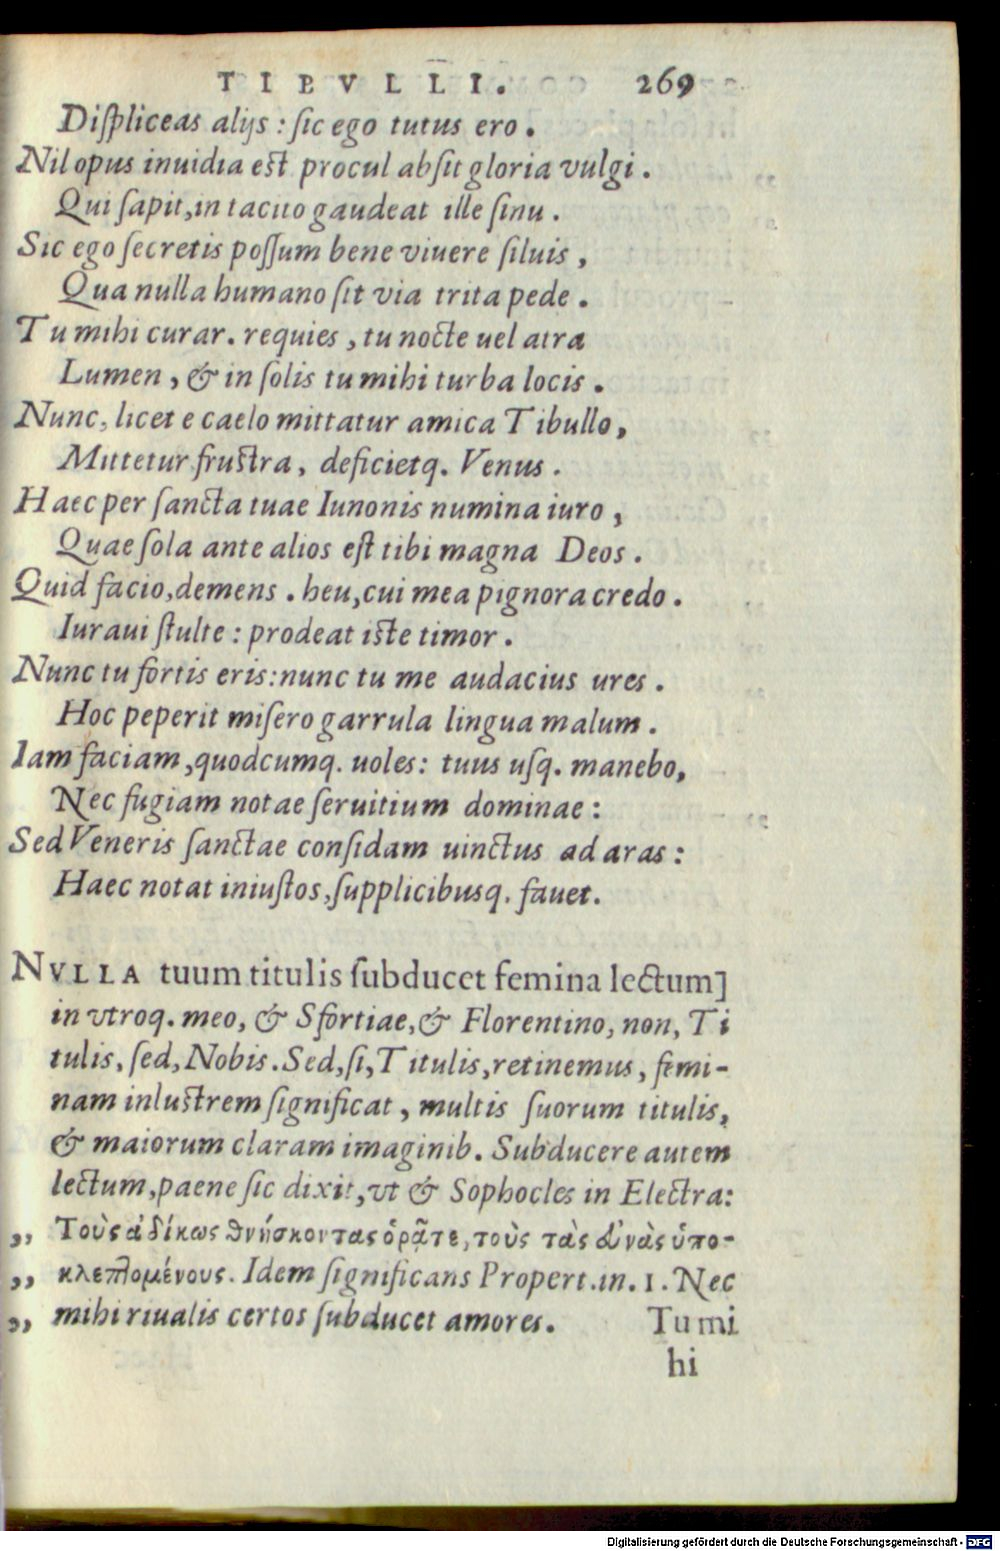 TIBVLLI. 269
Displiceas alijs : sic ego tutus ero .
Nil opus inuidia est procul absit gloria vulgi .
Qui sapit, in tacito gaudeat ille sinu .
Sic ego secretis possum bene viuere siluis ,
Qua nulla humano sit via trita pede .
Tu mihi curar. requies , tu nocte uel atra
Lumen , & in solis tu mihi turba locis .
Nunc, licet e caelo mittatur amica Tibullo,
Mittetur frustra, deficietq. Venus .
Haec per sancta tuae Iunonis numina iuro ,
Quae sola ante alios est tibi magna Deos .
Quid facio, demens . heu, cui mea pignora credo .
Iuraui stulte : prodeat iste timor .
Nunc tu fortis eris: nunc tu me audacius ures .
Hoc peperit misero garrula lingua malum .
Iam faciam, quodcumq. uoles: tuus usq. manebo,
Nec fugiam notae seruitium dominae :
Sed Veneris sanctae considam uinctus ad aras :
Haec notat iniustos, supplicibusq. fauet.
NVLLA tuum titulis subducet femina lectum]
in vtroq. meo, & Sfortiae, & Florentino, non, Ti
tulis, sed, Nobis. Sed, si, Titulis, retinemus, femi-
nam inlustrem significat , multis suorum titulis,
& maiorum claram imaginib. Subducere autem
lectum, paene sic dixit, vt & Sophocles in Electra:
,, Τοὺς ἀδίκως θνήσκοντας ὁρᾶτε, τοὺς τὰς εὐνὰς ὑπο-
,, κλεπτομένους. Idem significans Propert. in. 1. Nec
,, mihi riualis certos subducet amores. Tu mi
hi
Digitalisierung gefördert durch die Deutsche Forschungsgemeinschaft - DFG